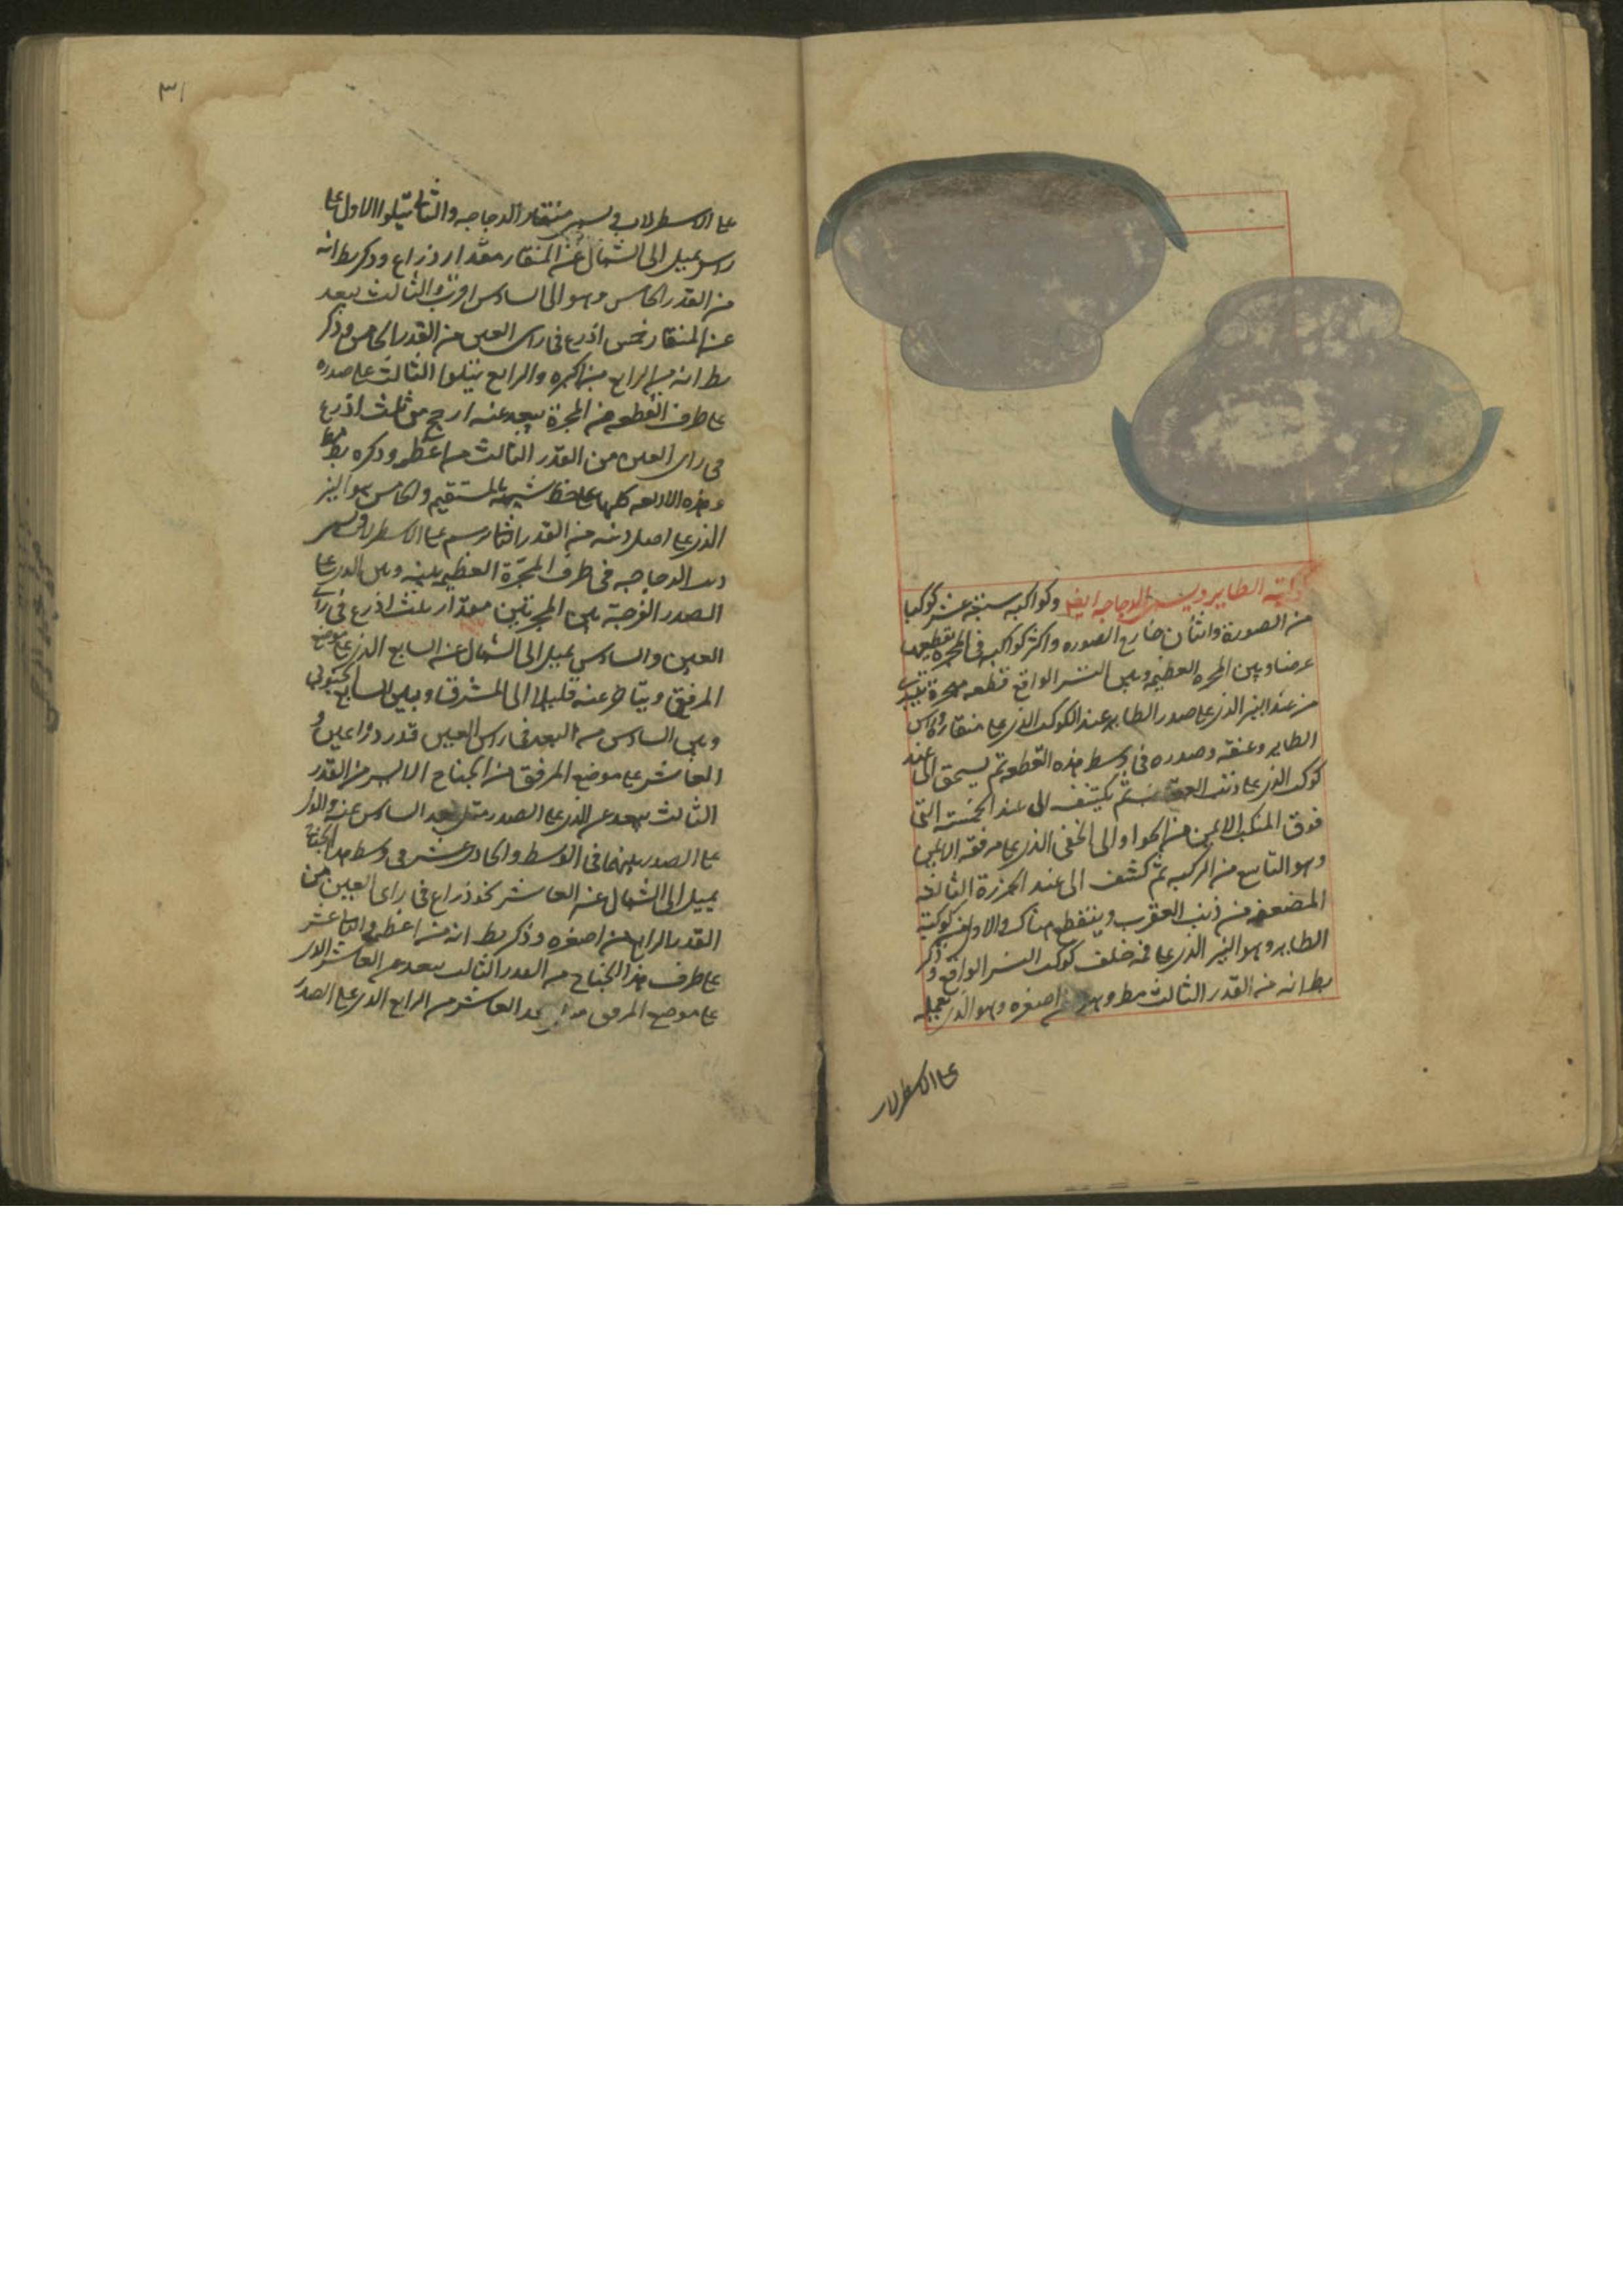 كوكبة الطاير ويسمى الدجاجه ايضا وكواكبه سبعة عشر كوكبا
من الصورة واثنان خارج الصوره واكثر كواكبه فى المجره تقطعها
عرضا وبين المجره العظيمه وبين النسر الواقع قطعه مجرة تبتدى
من عند النير الذى على صدر الطاير عند الكوكب الذى على منقاره وراس
الطاير وعنقه وصدره فى وسط هذه القطعه ثم الى عند
كوكب الذى على ذنب العقاب ثم يكتنف الى عند الخمسة التى
فوق المنكب الايمن من الحوا والى الخفى الذى على مرفقه الايمن
وهو التاسع من الركبه ثم الى عند الخرزة الثالثه
من ذنب العقرب وينقطع هناك والاول من كوكبة
الطاير وهو النير الذى على فمه خلف كوكب النسر الواقع وذكر
بط انه من القدر الثالث مط وهو من اصغره وهو الذى
على الاسطرلاب
٣١
على الاسطرلاب ويسمى منقار الدجاجه والثانى يتلوا الاول على
راسه يميل الى الشمال عن المنقار مقدار ذراع وذكر بط انه
من القدر الخامس وهو الى السادس اقرب والثالث يبعد
عن المنقار خمس اذرع فى راى العين من القدر الخامس وذكر
بط انه من الرابع من اكبره والرابع يتلوا الثالث على صدره
على طرف القطعه من المجرة يبعد عنه ارجح من ثلث اذرع
فى راى العين من القدر الثالث من اعظمه وذكره بط
وهذه الاربعه كلها على خط شبيه بالمستقيم والخامس هو النير
الذى على اصل ذنبه من القدر الثانى رسم على الاسطرلاب ويسمى
ذنب الدجاجه فى طرف المجرة العظيم بينه وبين الذى على
الصدر الفرجة بين المجرتين مقدار ثلث اذرع فى راى
العين والسادس يميل الى الشمال عن السابع الذى على موضع
المرفق ويتاخر عنه قليلا الى المشرق وبين السابع الجنوبى
وبين السادس من البعد فى راى العين قدر ذراعين و
العاشر على موضع المرفق من الجناح الايسر من القدر
الثالث يبعد عن الذى على الصدر مثل بعد السادس عنه والذى
على الصدر بينهما فى الوسط والحادى عشر فى وسط هذا الجناح
يميل الى الشمال عن العاشر نحو ذراع فى راى العين من
القدر الرابع من اصغره وذكر بط انه من اعظمه والثانى عشر
على طرف هذا الجناح من القدر الثالث يبعد عن العاشر الذى
على موضع المرفق بعد العاشر من الرابع الذى على الصدر